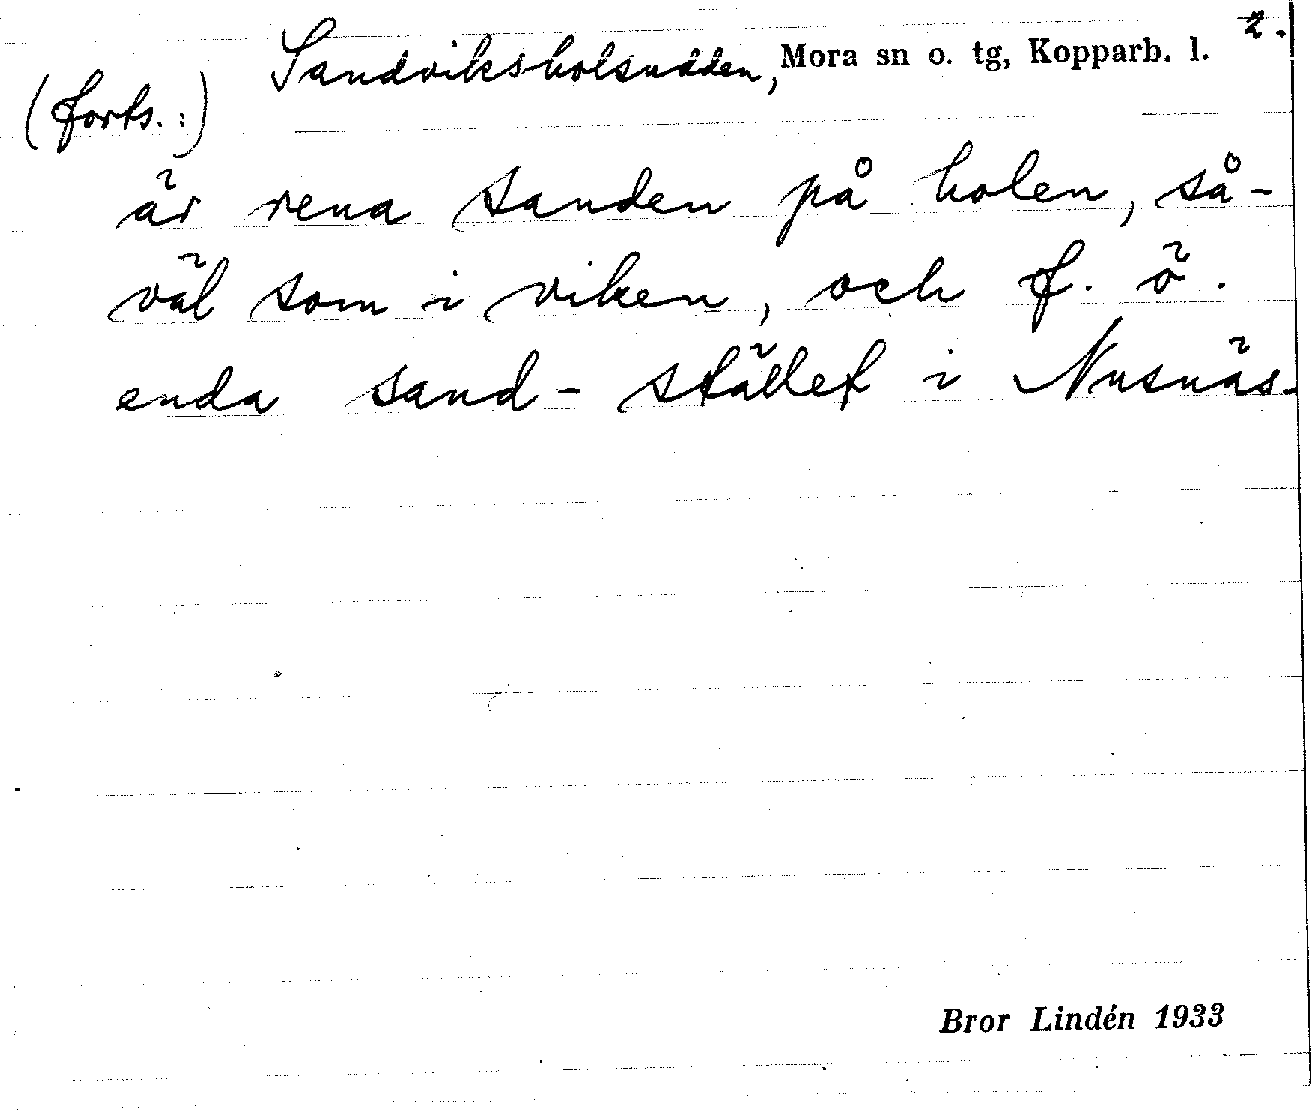 2.
Sandviksholsudden, Mora sn o. tg, Kopparb. l.
(forts.:)
är rena sanden på holen, så-
väl som i viken, och f. ö.
enda sand-stället i Nusnäs.
Bror Lindén 1933